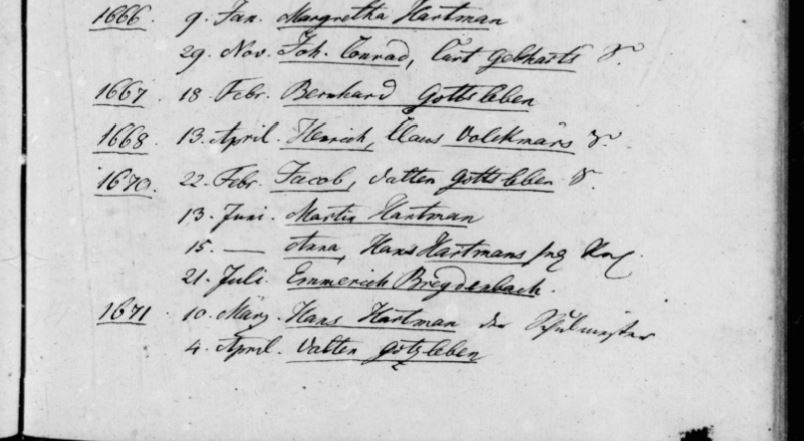 1666. 9. Jan. Margretha Hartman
29. Nov. Joh. Conrad, Curt Gebharts S.
1667 18 Febr. Bernhard Gottsleben
1668. 13. April. Henrich, Claus Volckmars S.
1670. 22. Febr. Jacob, Valten Gottsleben S.
13. Juni. Martin Hartman
15. — Anna, Hans Hartmans
21. Juli. Emmerich Breydenbach.
1671 10. März. Hans Hartman der Schulmeister
4. April. Valten Götzleben